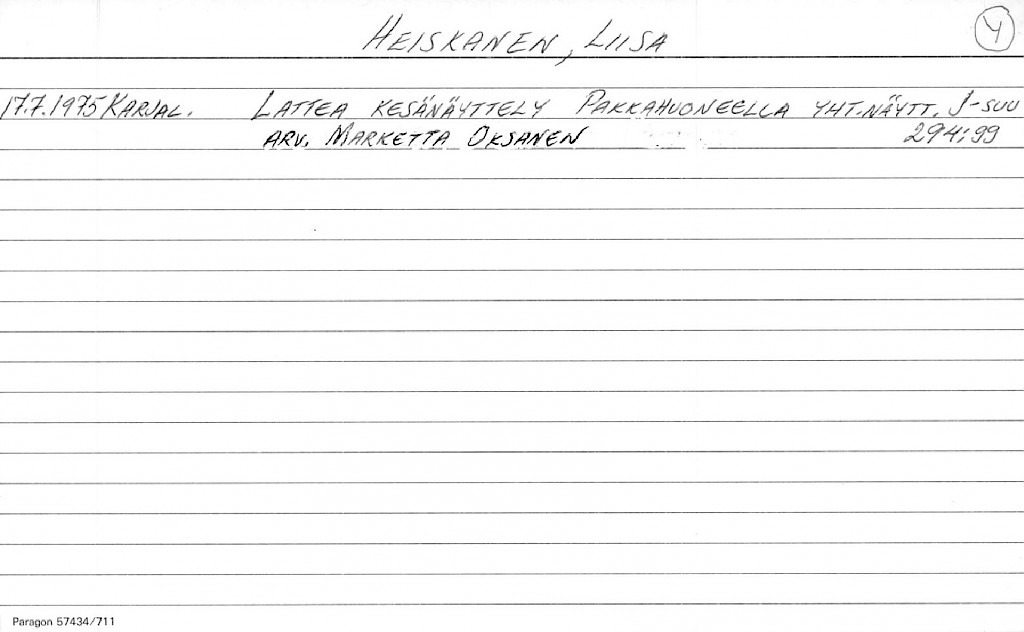 HEISKANEN, LIISA
Y
17.7.1975 KARJAL. LATTEA KESÄNÄYTTELY PAKKAHUONEELLA YHT.NÄYTT. J-SUU
ARV. MARKETTA OKSANEN 294:99
Paragon 57434/711